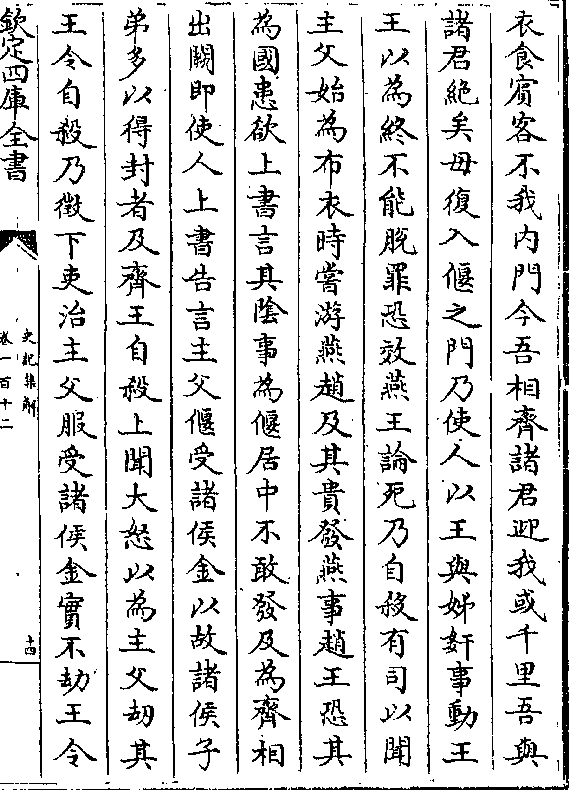 衣食賓客不我內門今吾相齊諸君迎我或千里吾與
諸君絶矣毋復入偃之門乃使人以王與姊姧事動王
王以為終不能脫罪恐效燕王論死乃自殺有司以聞
主父始為布衣時嘗游燕趙及其貴發燕事趙王恐其
為國患欲上書言其陰事為偃居中不敢發及為齊相
出關即使人上書告言主父偃受諸侯金以故諸侯子
弟多以得封者及齊王自殺上聞大怒以為主父劫其
王令自殺乃徵下吏治主父服受諸侯金實不劫王令
欽定四庫全書
史記集解
卷一百十二
十四